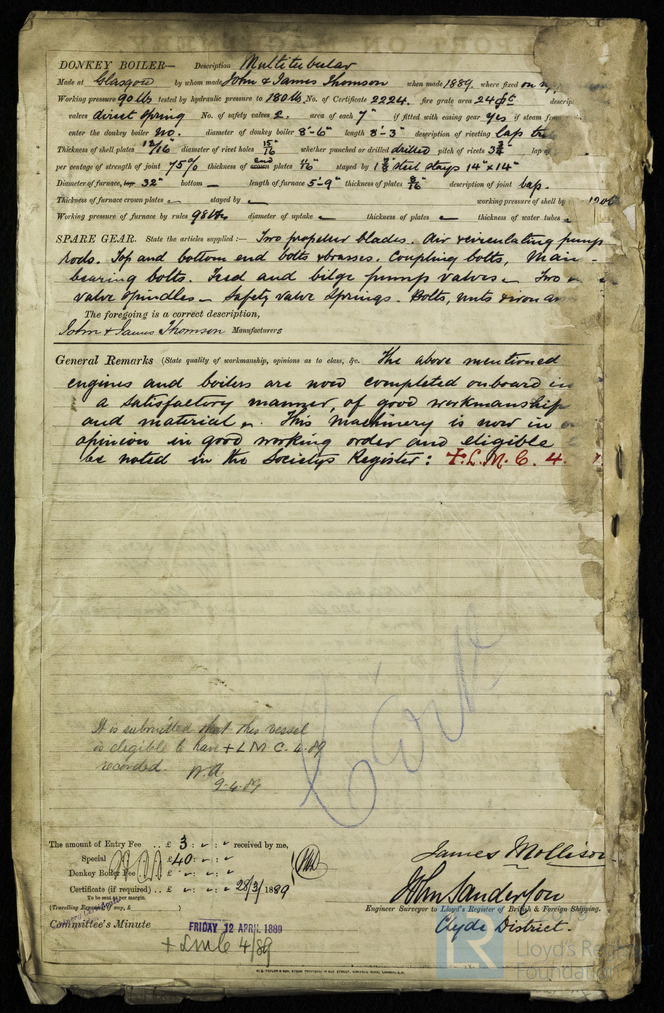 DONKEY BOILER— Description Multitubular
Made at Glasgow by whom made John & James Thomson when made 1889. where fixed on
Working pressure 90 lbs tested by hydraulic pressure to 180 lbs. No. of Certificate 2224. fire grate area 24 descrip
valves direct spring No. of safety valves 2. area of each 7" if fitted with easing gear yes if steam from
enter the donkey boiler no. diameter of donkey boiler 8'-6" length 8'-3" description of riveting lap
Thickness of shell plates 12/16" diameter of rivet holes 15/16 whether punched or drilled drilled pitch of rivets lap of
per centage of strength of joint 75% thickness of end plates stayed by steel stays 14" x 14"
Diameter of furnace, top 32" bottom — length of furnace 5'-9" thickness of plates description of joint lap.
Thickness of furnace crown plates — stayed by — working pressure of shell by
Working pressure of furnace by rules 98 lbs diameter of uptake — thickness of plates — thickness of water tubes
SPARE GEAR. State the articles supplied:— Two propeller blades. Air & circulating pump
rods. Top and bottom end bolts & brasses. Coupling bolts, Main-
bearing bolts. Feed and bilge pump valves — Two
valve spindles — Safety valve springs. Bolts, nuts & iron as
The foregoing is a correct description,
John & James Thomson Manufacturers
General Remarks (State quality of workmanship, opinions as to class, &c. The above mentioned
engines and boilers are now completed onboard in
a satisfactory manner, of good workmanship
and material. This machinery is now in
opinion in good working order and eligible
be noted in the Societys Register: + L.M.C. 4.
Cork
It is submitted that this vessel
is eligible to have + L M C. 4.89
recorded.
9-4-89
The amount of Entry Fee .. £ 3 : " : " received by me,
Special £ 40 : " : "
Donkey Boiler Fee £ " : " : "
Certificate (if required) .. £ " : " : " 28/3/1889
To be sent as per margin.
(Travelling Expenses, if any, £ )
James Mollison
Jhn Sanderson
Engineer Surveyor to Lloyd's Register of British & Foreign Shipping.
Clyde District.
Committee's Minute
FRIDAY 12 APRIL 1889
+ LMC 4/89
LR
Lloyd's Register
Foundation